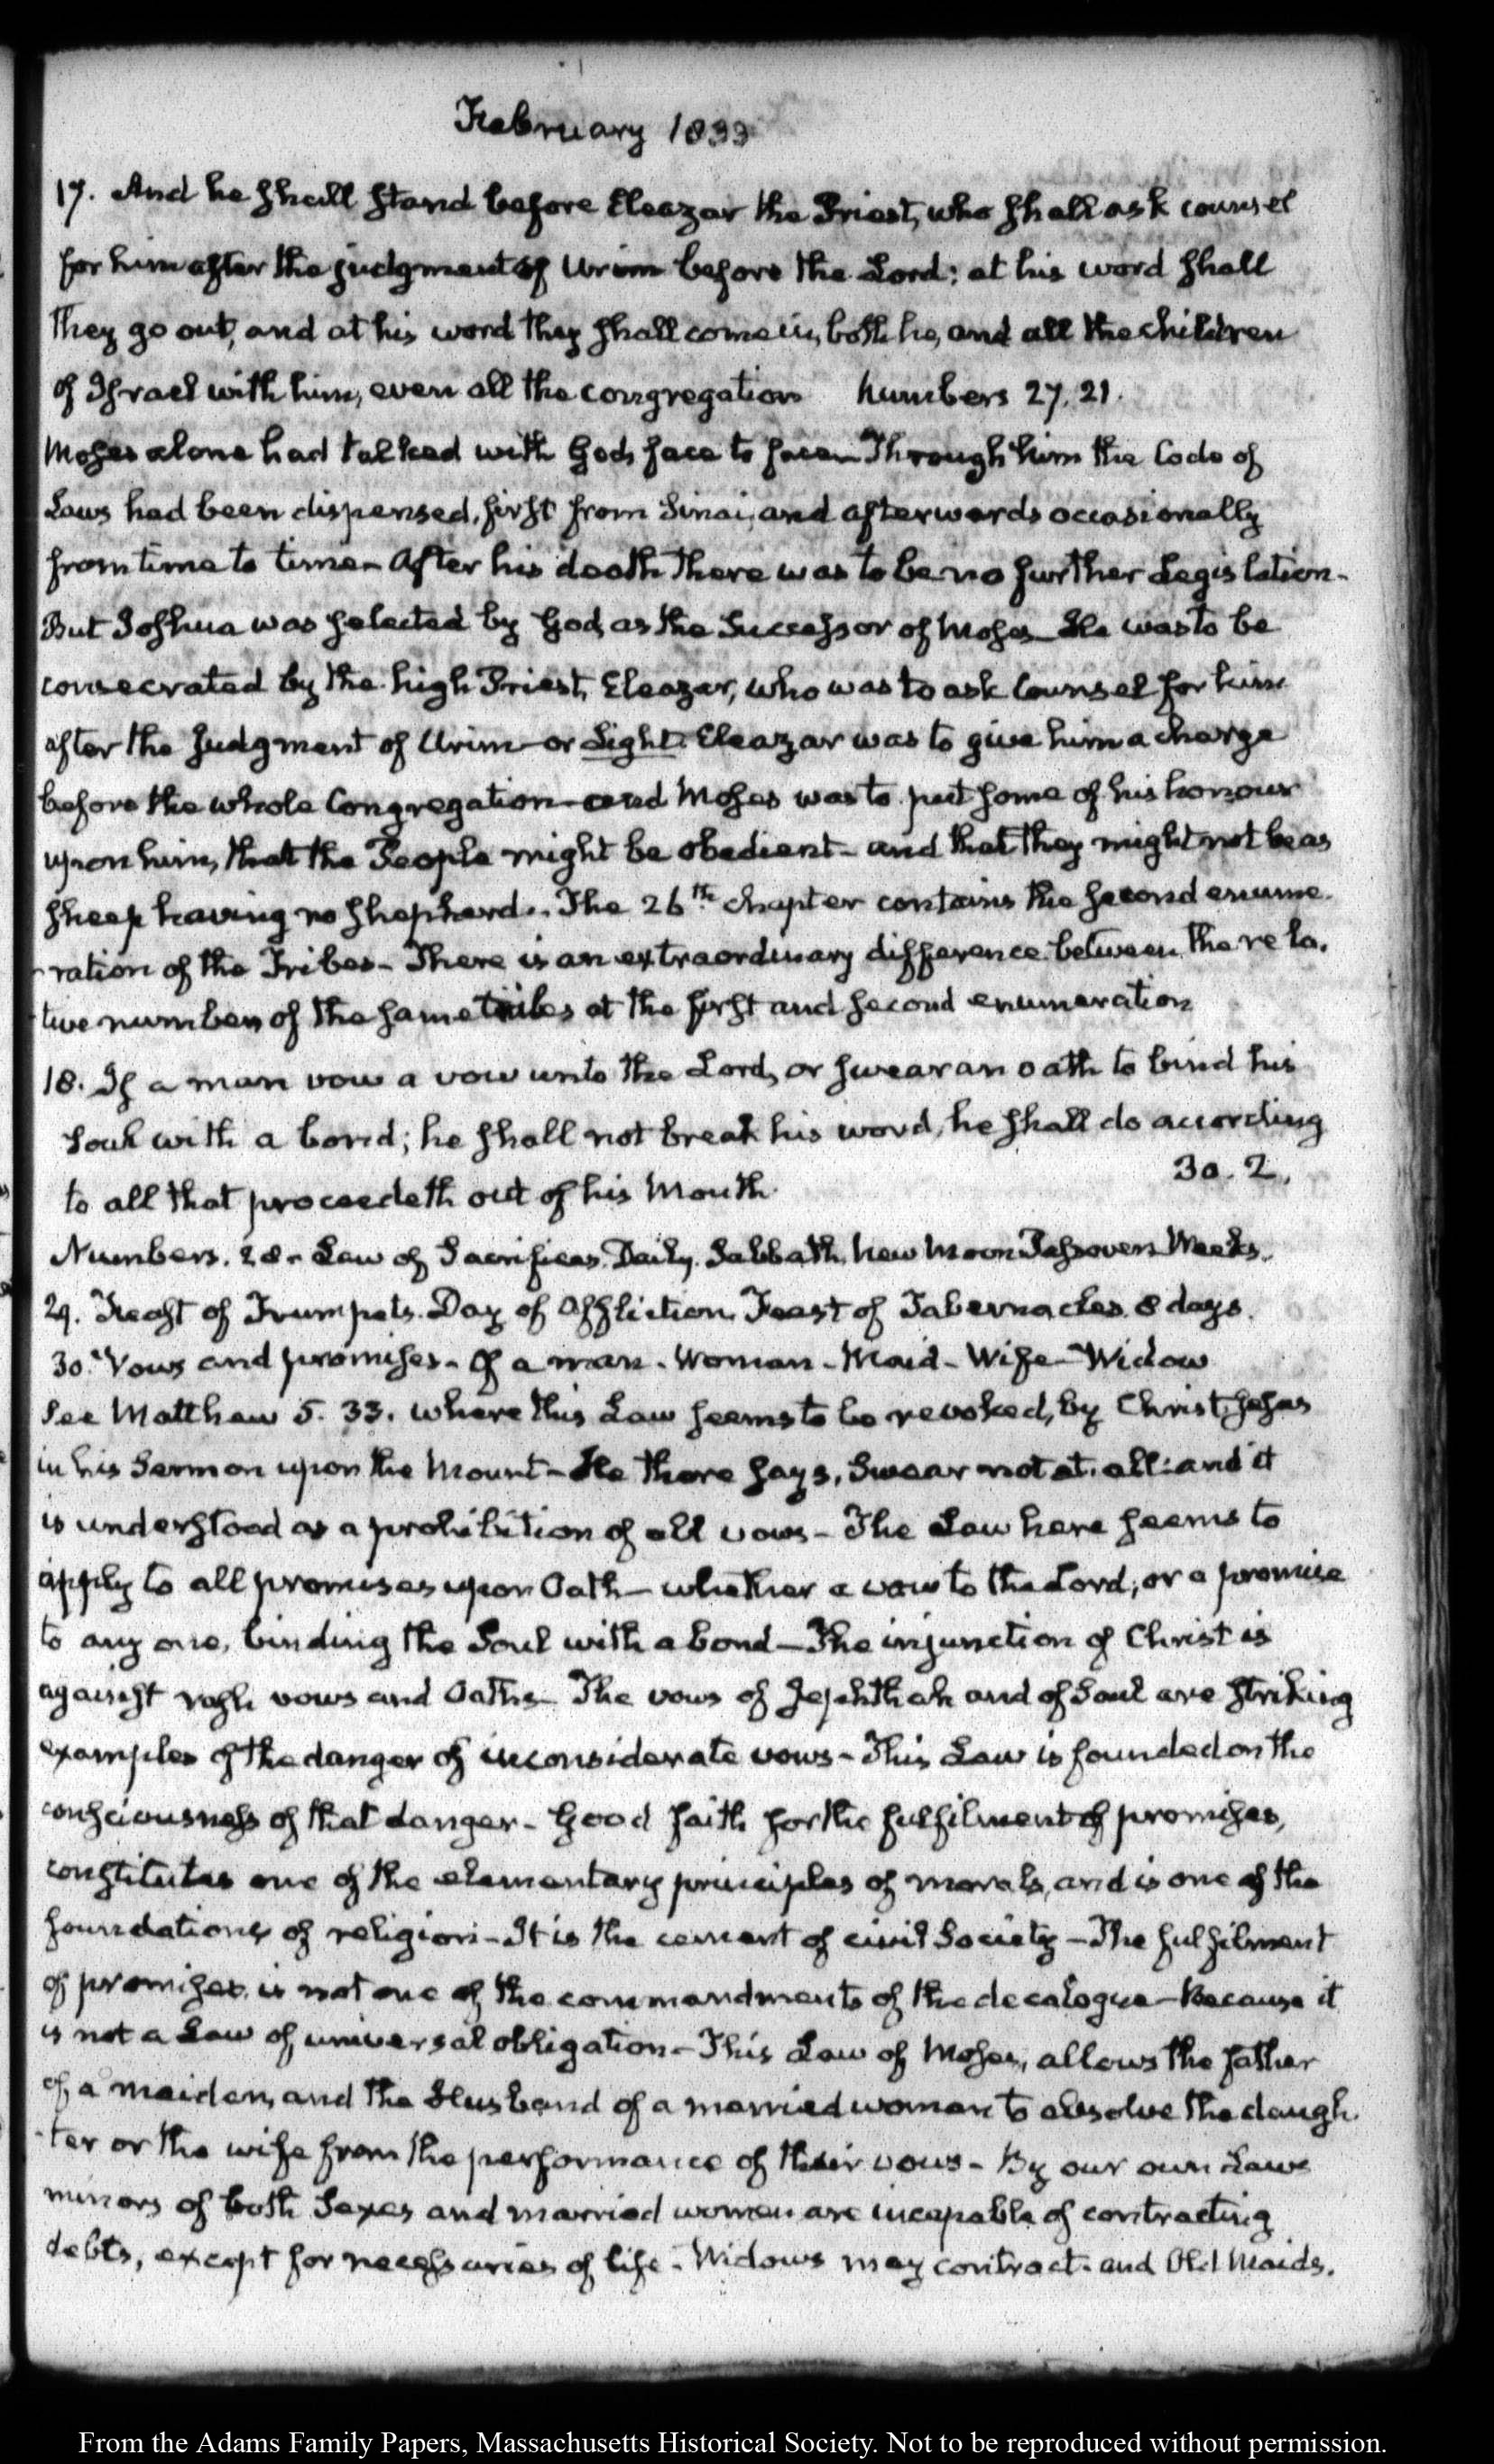 February 1833
17. And he shall stand before Eleazar the Priest, who shall ask counsel
for him after the judgment of Urim before the Lord: at his word shall
they go out, and at his word they shall come in, both he, and all the children
of Israel with him, even all the congregation Numbers 27. 21.
Moses alone had talked with God, face to face – Through him the Code of
Laws had been dispensed, first from Sinai, and afterwards occasionally
from time to time – After his death there was to be no further Legislation –
But Joshua was selected by God, as the Successor of Moses – He was to be
consecrated by the high Priest, Eleazar, who was to ask Counsel for him
after the Judgment of Urim – or Light. Eleazar was to give him a charge
before the whole Congregation – and Moses was to put some of his honour
upon him, that the People might be obedient – and that they might not be as
sheep having no shepherd. The 26th chapter contains the second enume-
-ration of the Tribes – There is an extraordinary difference between the rela-
-tive numbers of the same tribes at the first and second enumeration
18. If a man vow a vow unto the Lord, or swear an oath to bind his
Soul with a bond; he shall not break his word, he shall do according
to all that proceedeth out of his Mouth. 30. 2.
Numbers. 28. Law of Sacrifices. Daily. Sabbath, New Moon Passover. Weeks.
29. Feast of Trumpets. Day of Affliction. Feast of Tabernacles. 8 days.
30. Vows and promises – Of a man – Woman – Maid – Wife – Widow
See Matthew 5. 33. where this Law seems to be revoked, by Christ
in his Sermon upon the Mount – He there says, Swear not at all: and it
is understood as a prohibition of all vows – The Law here seems to
apply to all promises upon Oath – whether a vow to the Lord, or a promise
to any one, binding the Soul with a bond – The injunction of Christ is
against rash vows and Oaths – The vows of Jephthah and of Saul are striking
examples of the danger of inconsiderate vows – This Law is founded on the
consciousness of that danger – Good faith for the fulfilment of promises,
constitutes one of the elementary principles of morals, and is one of the
foundations of religion – It is the cement of civil Society – The fulfilment
of promises, is not one of the commandments of the decalogue – Because it
is not a Law of universal obligation – This Law of Moses, allows the father
of a maiden, and the Husband of a married woman to absolve the daugh-
-ter or the wife from the performance of their vows – By our own Laws
minors of both Sexes and married women are incapable of contracting
debts, except for necessaries of life – Widows may contract – and Old Maids.
From the Adams Family Papers, Massachusetts Historical Society. Not to be reproduced without permission.